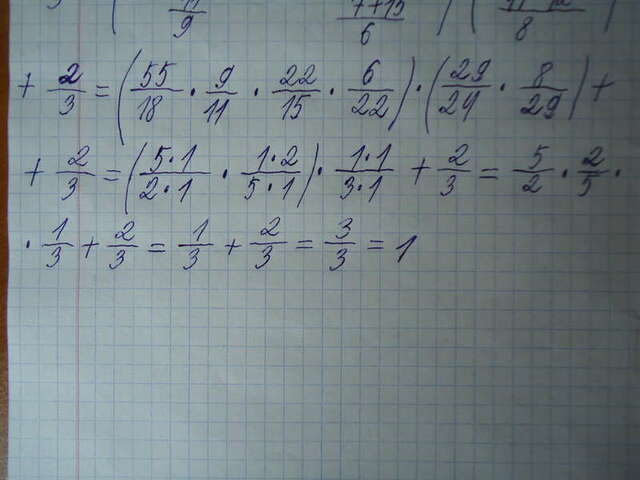 9 7+15/6 8
+ 2/3 = (55/18 · 9/11 · 22/15 · 6/22) · (29/24 · 8/29) +
+ 2/3 = (5·1/2·1 · 1·2/5·1) · 1·1/3·1 + 2/3 = 5/2 · 2/5 ·
· 1/3 + 2/3 = 1/3 + 2/3 = 3/3 = 1